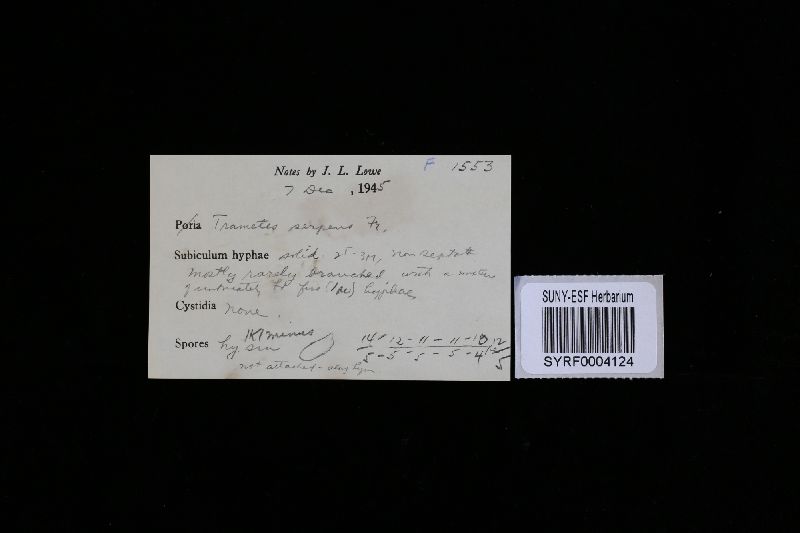 Notes by J. L. Lowe F 1553
7 Dec, 1945
Poria Trametes serpens Fr.
Subiculum hyphae solid 2.5-3µ, non septate
mostly rarely branched with a
fine hyphae
Cystidia none.
Spores hy sm KI minus 14/5 - 12/5 - 11/5 - 11/5 - 10/4 12/5
not attached - along hym
SUNY-ESF Herbarium
SYRF0004124